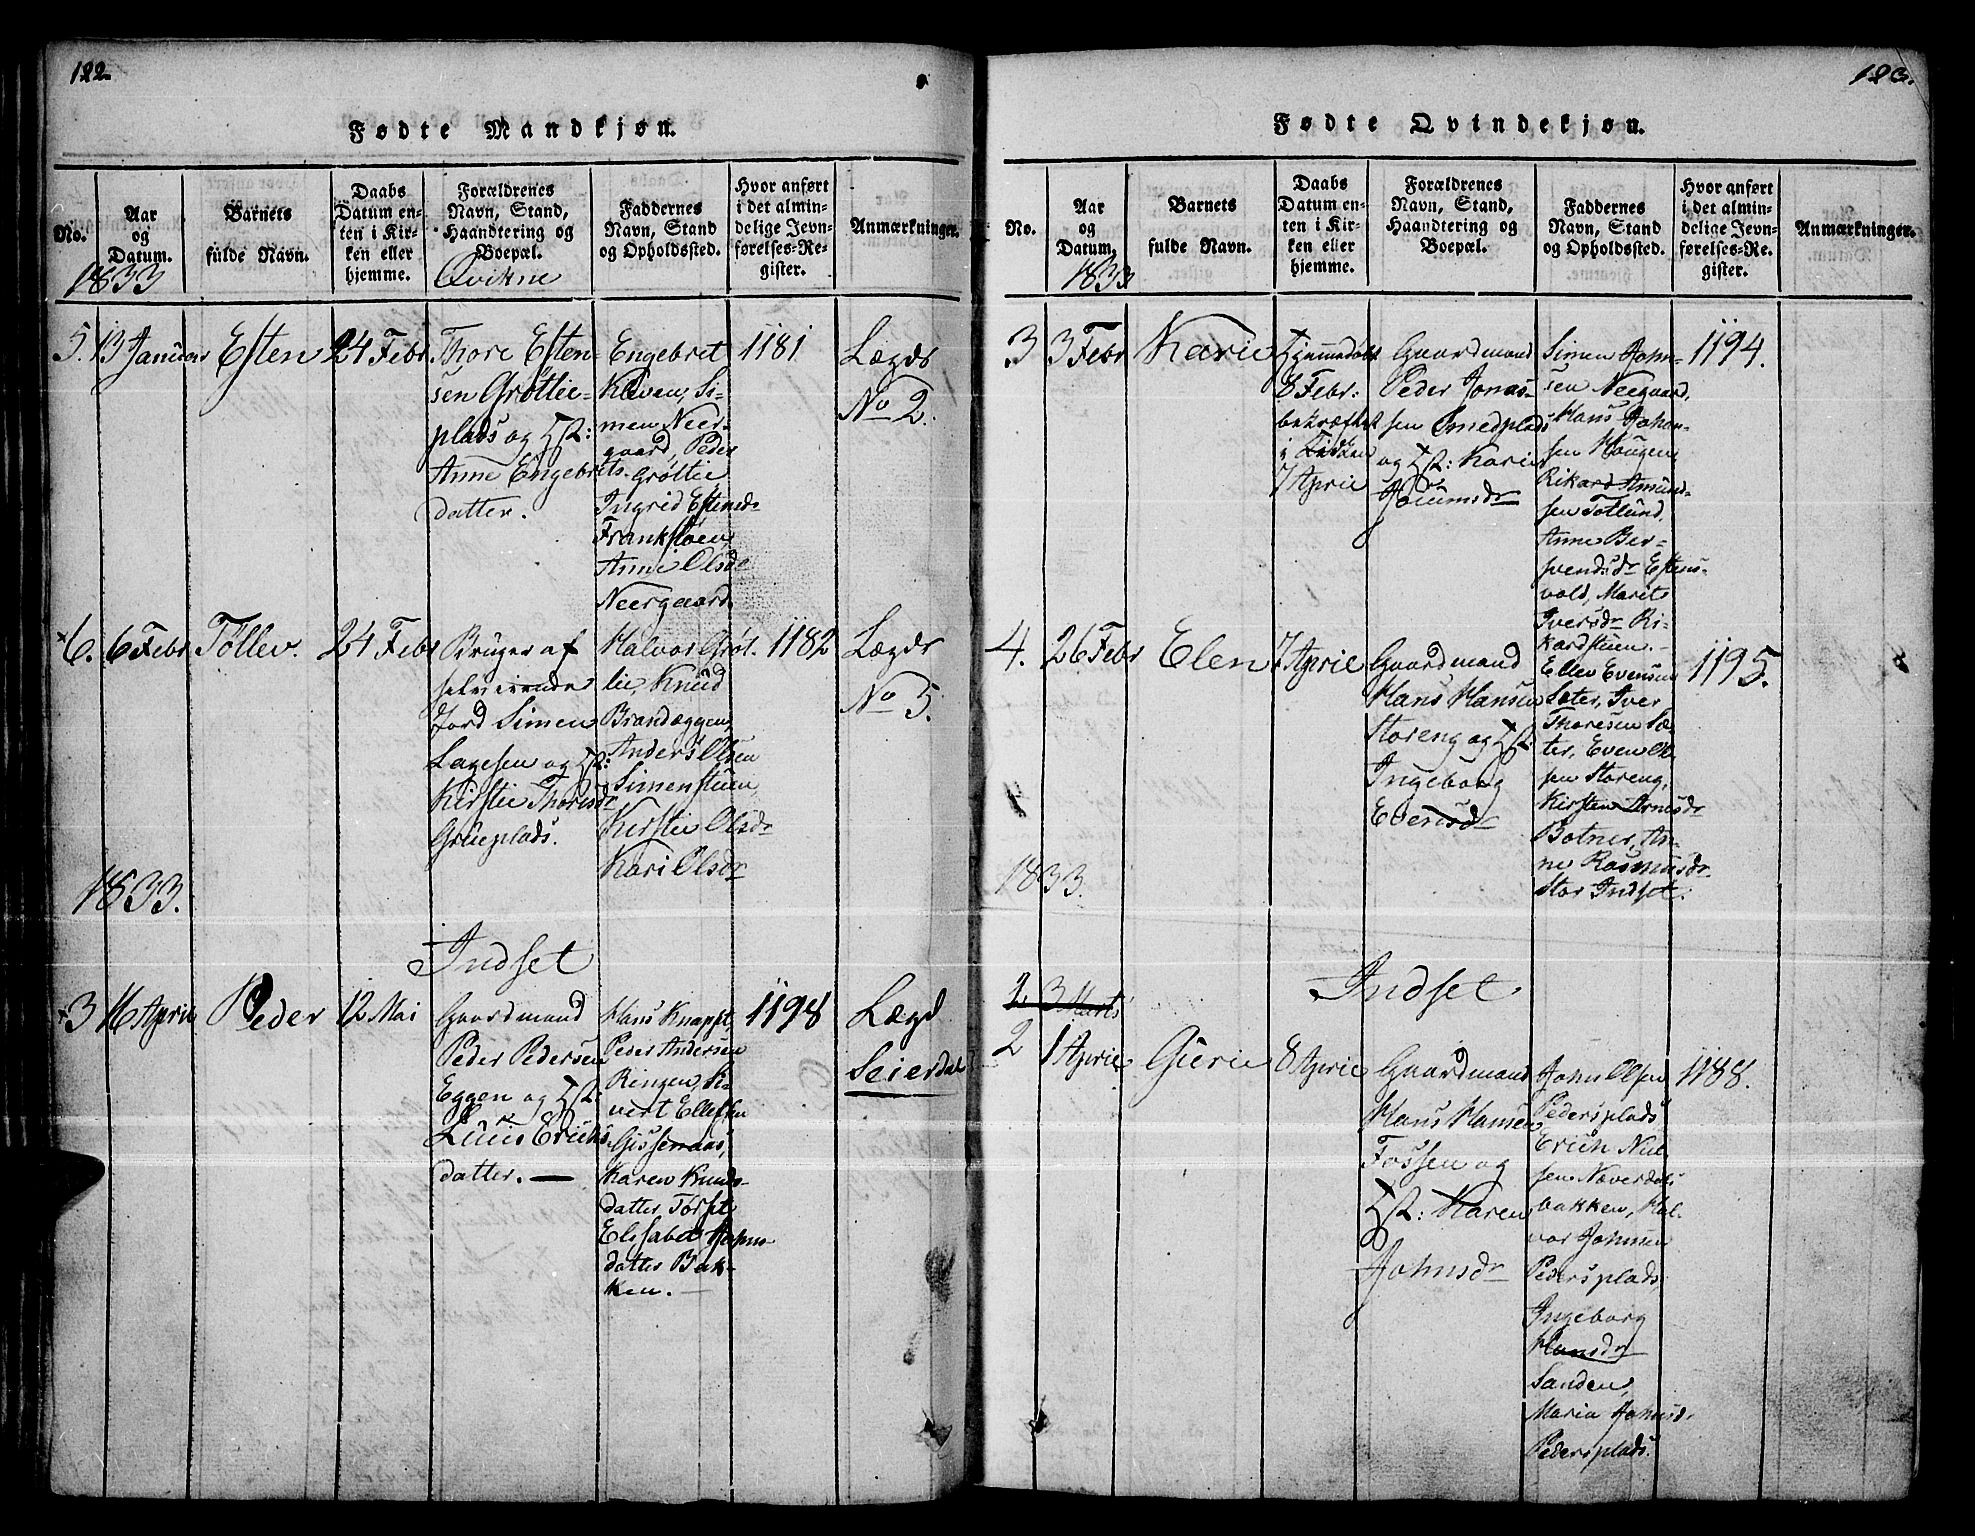 122.
Fødte Mandkjøn.
No.
Aar
og
Datum.
1833
Barnets
fulde Navn.
Daabs
Datum en-
ten i Kir-
ken eller
hjemme.
Forældrenes
Navn, Stand,
Haandtering og
Boepæl.
Qvikne
Faddernes
Navn, Stand
og Opholdssted.
Hvor anført
i det almin-
delige Jevn-
førelses-Re-
gister.
Anmærkninger.
5.
13 Januar
Esten
24 Febr
Thore Esten-
sen Grøtlie-
plads og Hst:
Anne Engebrets-
datter.
Engebret
Kleven, Si-
men Neer-
gaard, Peder
Grøtlie
Ingrid Estensd-
Frankstøen
Anne Olsd-
Neergaard.
1181
Lægds
No 2.
6.
6 Febr
Tøllev.
24 Febr
Bruger af
selveiende
Jord Simen
Lagesen og Hst:
Kirstie Thoresdr
Grueplads.
Halvor Grøt-
lie, Knud
Brandæggen,
Anders Olsen
Simenstuen
Kirstie Olsdr
Kari Olsdr
1182
Lægds
No 5.
1833.
Indset
3
16 Aprie
Peder
12 Mai
Gaardmand
Peder Pedersen
Eggen og Hst:
Luus Erichs
datter. —
Hans Knapst,
Peder Andersen
Ringen, Si-
vert Ellefsen
Gissenaas,
Karen Knuds-
datter Torset
Elisabet John-
datter Bak-
ken. —
1198
Lægd
Seierdal
123.
Fødte Qvindekjøn.
No.
Aar
og
Datum.
1833
Barnets
fulde Navn.
Daabs
Datum en-
ten i Kir-
ken eller
hjemme.
Forældrenes
Navn, Stand,
Haandtering og
Boepæl.
Faddernes
Navn, Stand
og Opholdssted.
Hvor anført
i det almin-
delige Jevn-
førelses-Re-
gister.
Anmærkninger.
3
3 Febr
Karie
Hjemmedøbt
8 Febr:
bekræftet
i Kirken
7 Aprie
Gaardmand
Peder Jonas-
sen Smedplads
og Hst: Karen
Joeumsdr
Simen John-
sen Neegaard,
Hans Johan-
sen Haugen,
Rikard Amund-
sen Totlund,
Anne Ber-
svendsdr Estens-
vold, Marit
Iversdr Ri-
kardstuen. -
1194.
4.
26 Febr
Elen
7 Aprie
Gaardmand
Hans Hansen
Storeng og Hst:
Ingeborg
Evensdr
Ellev Evensen
Sæter, Iver
Thoresen Sæ-
ter, Even Ol-
sen Storeng,
Kirsten Arnesdr
Botner, An-
ne Rasmusdr
Stor Indset.
1195.
1833.
Indset
2 3 Marts
2
1 Aprie
Gurie
8 Aprie
Gaardmand
Hans Hansen
Fossen og
Hst: Karen
Johnsdr
John Olsen
Pedersplads
Erich Niel-
sen Næverdals
bakken, Hal-
vor Johnsen
Pedersplads,
Ingeborg
Hansdr
Sanden,
Maria Johnsdr
Pedersplads.
1188.